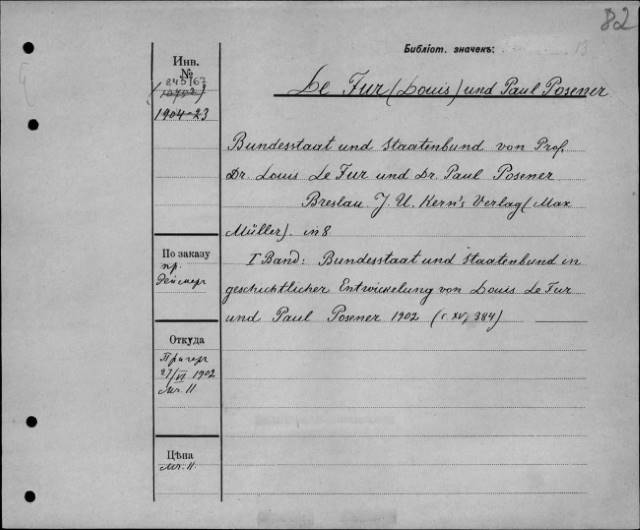 82
Библіот. значекъ:
Инв.
№
1904-23
Le Fur (Louis) und Paul Posener
Bundesstaat und Staatenbund von Prof.
Dr. Louis Le Fur und Dr. Paul Posener
Breslau J. U. Kern's Verlag (Max
Müller). in 8
По заказу
пр.
I Band: Bundesstaat und Staatenbund in
geschichtlicher Entwickelung von Louis Le Fur
und Paul Posener 1902 (S. XV, 384)
Откуда
Прагеръ
27/VI 1902
Мк. 11
Цѣна
Мк. 11.